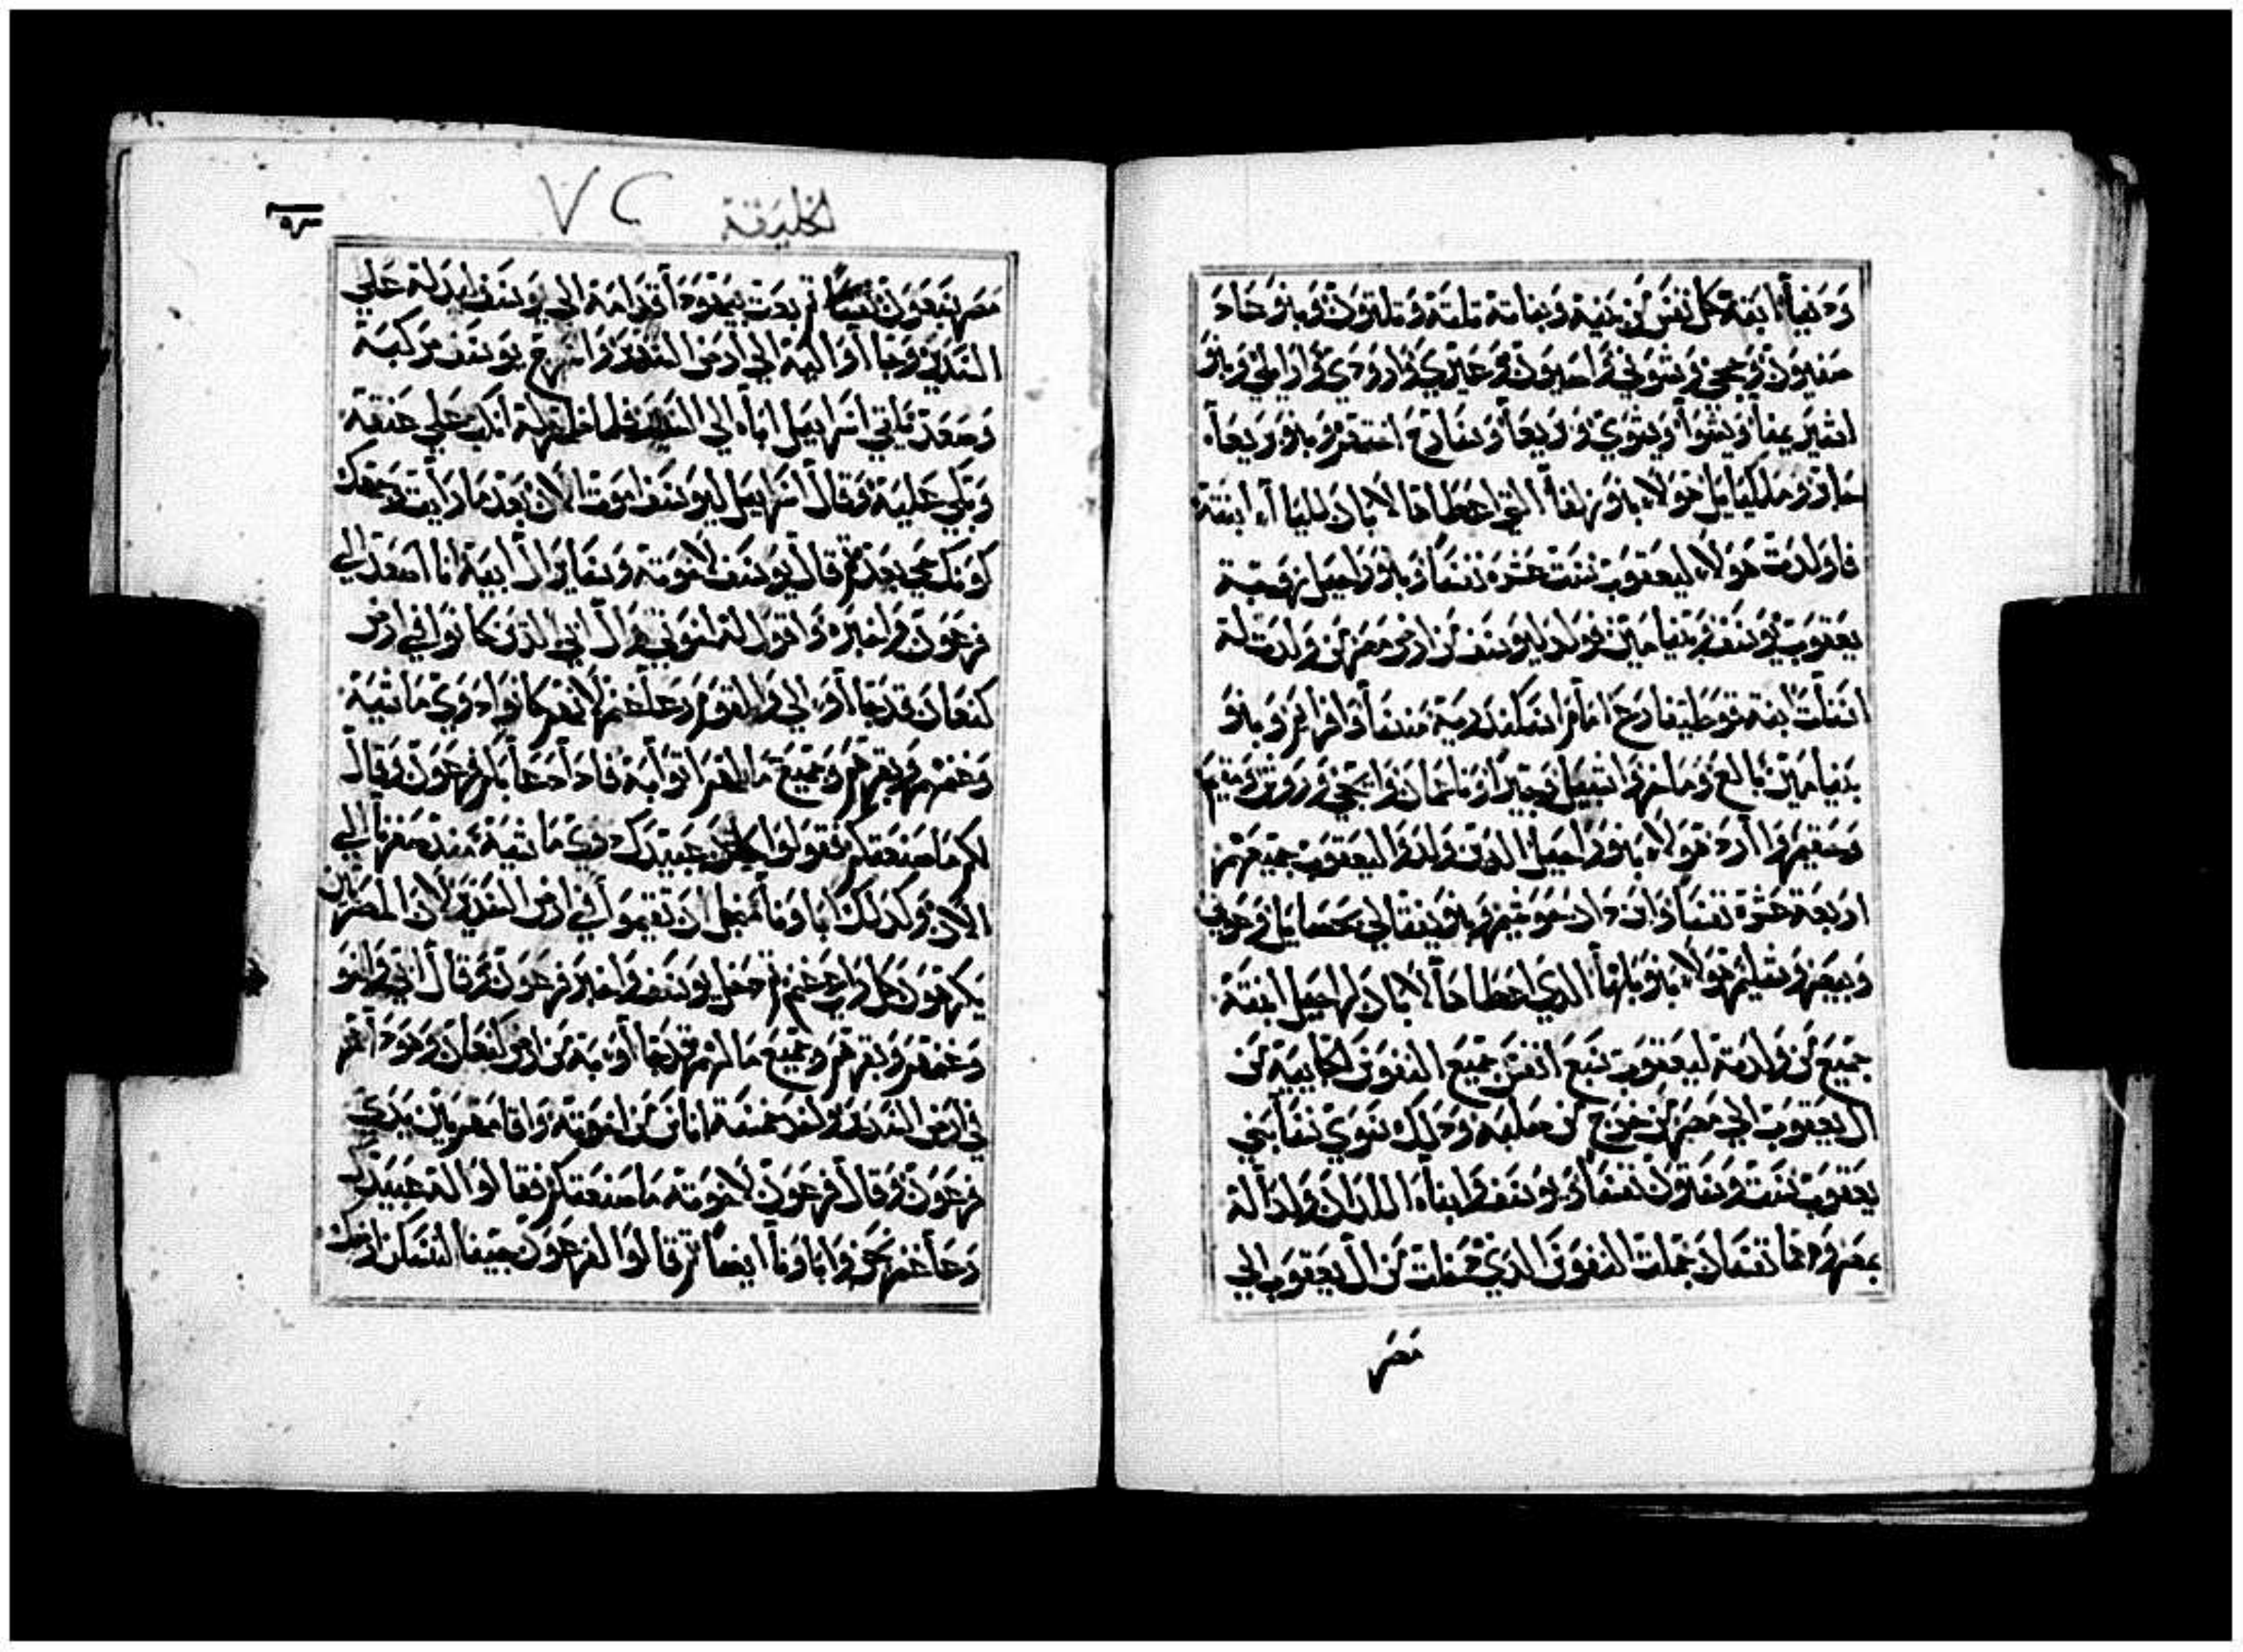 ودينا ابنة كل نفس من بنية وبناتة تلتة وتلتون وبنو جاد
صفيون وحجي وشوني واصبون وعيري وارودي وارايلي وبنو
اشير يمنا ويشوا ويشوي وبريعا وسارح اختهم وبنو بريعا
حابر وملكيايل هولا بنو زلفا التي اعطاها لابان لليا ابنتة
فاولدت هولا ليعقوب ستت عشره نفسا وبنو راحيل زوجة
يعقوب يوسف وبنيامين فولد ليوسف من ارض مصر من ولدت لة
اسنات ابنة فوطيفارع امام اسكندرية منسا وافرايم وبنو
بنيامين بالع وباخر واشبيل وجيرا وناعمان واجي وروش ومفيم
وحفيم وارد هولا بنو راحيل الدين ولدوا ليعقوب جميعهم
اربعة عشره نفسا وابن دان حوشيم وبنو نفتالي يحصايل وجوني
ويصر وشليم هولا بنو بلها الدي اعطاها لابان لراحيل ابنتة
جميع من ولدتة ليعقوب سبع انفس جميع النفوس الجاييية من
ال يعقوب الي مصر من خرج من صلبه ودلك سوي نسا بني
يعقوب ستت وستون نفسا ويوسف وابناه اللدان ولدا لة
بمصر وهما نفسان جملت النفوس الدي دخلت من ال يعقوب الي
مصر
الخليقة ٧٢
مصر سبعون نفسا ثم بعت بيهودا قدامة الي يوسف ليدلة علي
السدير وجااوا الية الي ارض السدير واسرج يوسف مركبة
وصعد تلقي اسراييل اباه الي السدير فلما ظهر لة انكب علي عنقة
وبكي علية وقال اسراييل ليوسف اموت الان بعد ما رايت وجهك
كونك حي بعد ثم قال يوسف لاخوتة وسايرال ابية انا اصعد الي
فرعون واخبره واقول لة اخوتي وال ابي الدين كانوا في ارض
كنعان قد جااوا الي والقوم رعا غنم لانهم كانوا دوي ماشية
وغنمهم وبقرهم وجميع ما لهم اتوا بة فادا دعا بكم فرعون وقال
لكم ما صنعتكم فقولوا كان عبيدك دوي ماشية مند صغرنا الي
الان وكدلك ابا ونا من اجل ان تقيموا في ارض السدير لان المصريين
يكرهون كل راعي غنم ثم دخل يوسف واخبر فرعون وقال ابي واخوتي
وغنمهم وبقرهم وجميع ما لهم قد جااوا بة من ارض كنعان وهودا هم
في ارض السدير واخد خمسة اناس من اخوتة واقامهم بين يدي
فرعون وقال فرعون لاخوتة ما صنعتكم فقالوا لة عبيدك
رعا غنم نحن وابا ونا ايضا ثم قالوا لفرعون جينا لنسكن ارضك